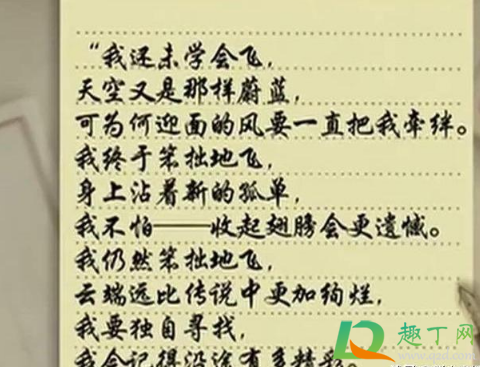 “我还未学会飞，
天空又是那样蔚蓝，
可为何迎面的风要一直把我牵绊。
我终于笨拙地飞，
身上沾着新的孤单，
我不怕——收起翅膀会更遗憾。
我仍然笨拙地飞，
云端远比传说中更加绚烂，
我要独自寻找，
我会记得沿途有多精彩。
趣丁网